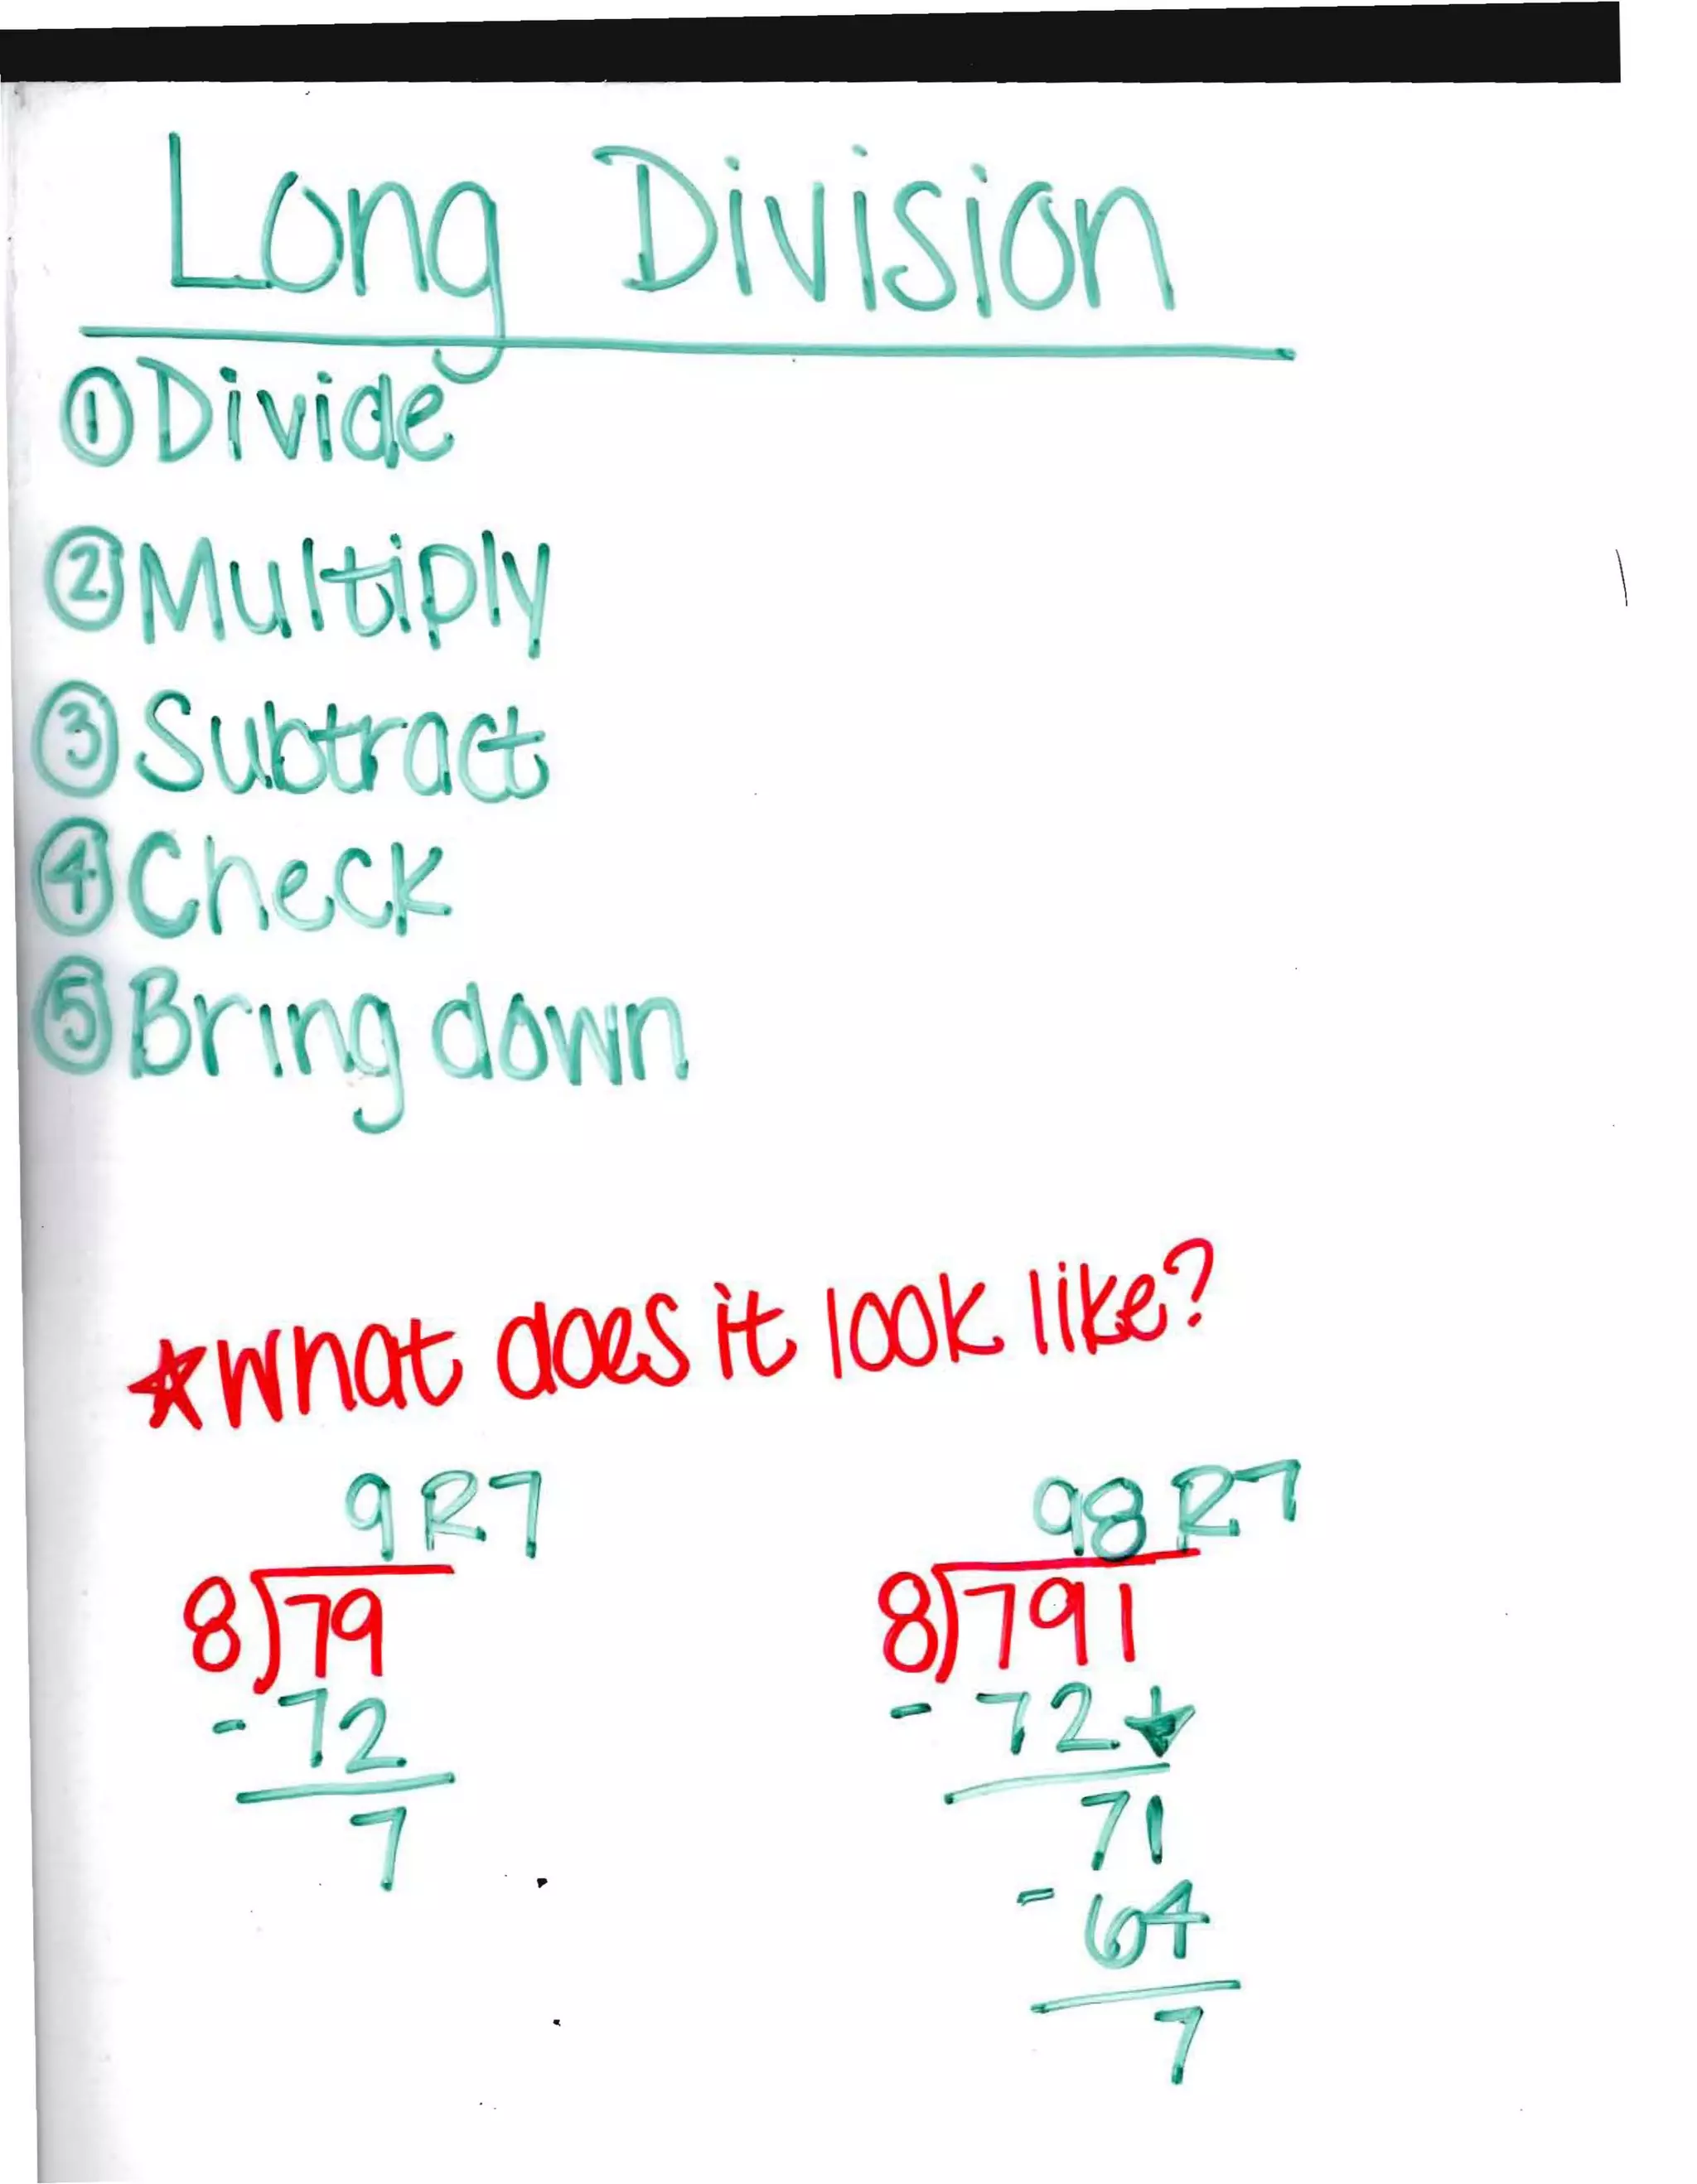 Long Division
① Divide
② Multiply
③ Subtract
④ Check
⑤ Bring down
☆What does it look like?
9 R7
8)79
- 72
7
98 R7
8)791
- 72↓
71
- 64
7